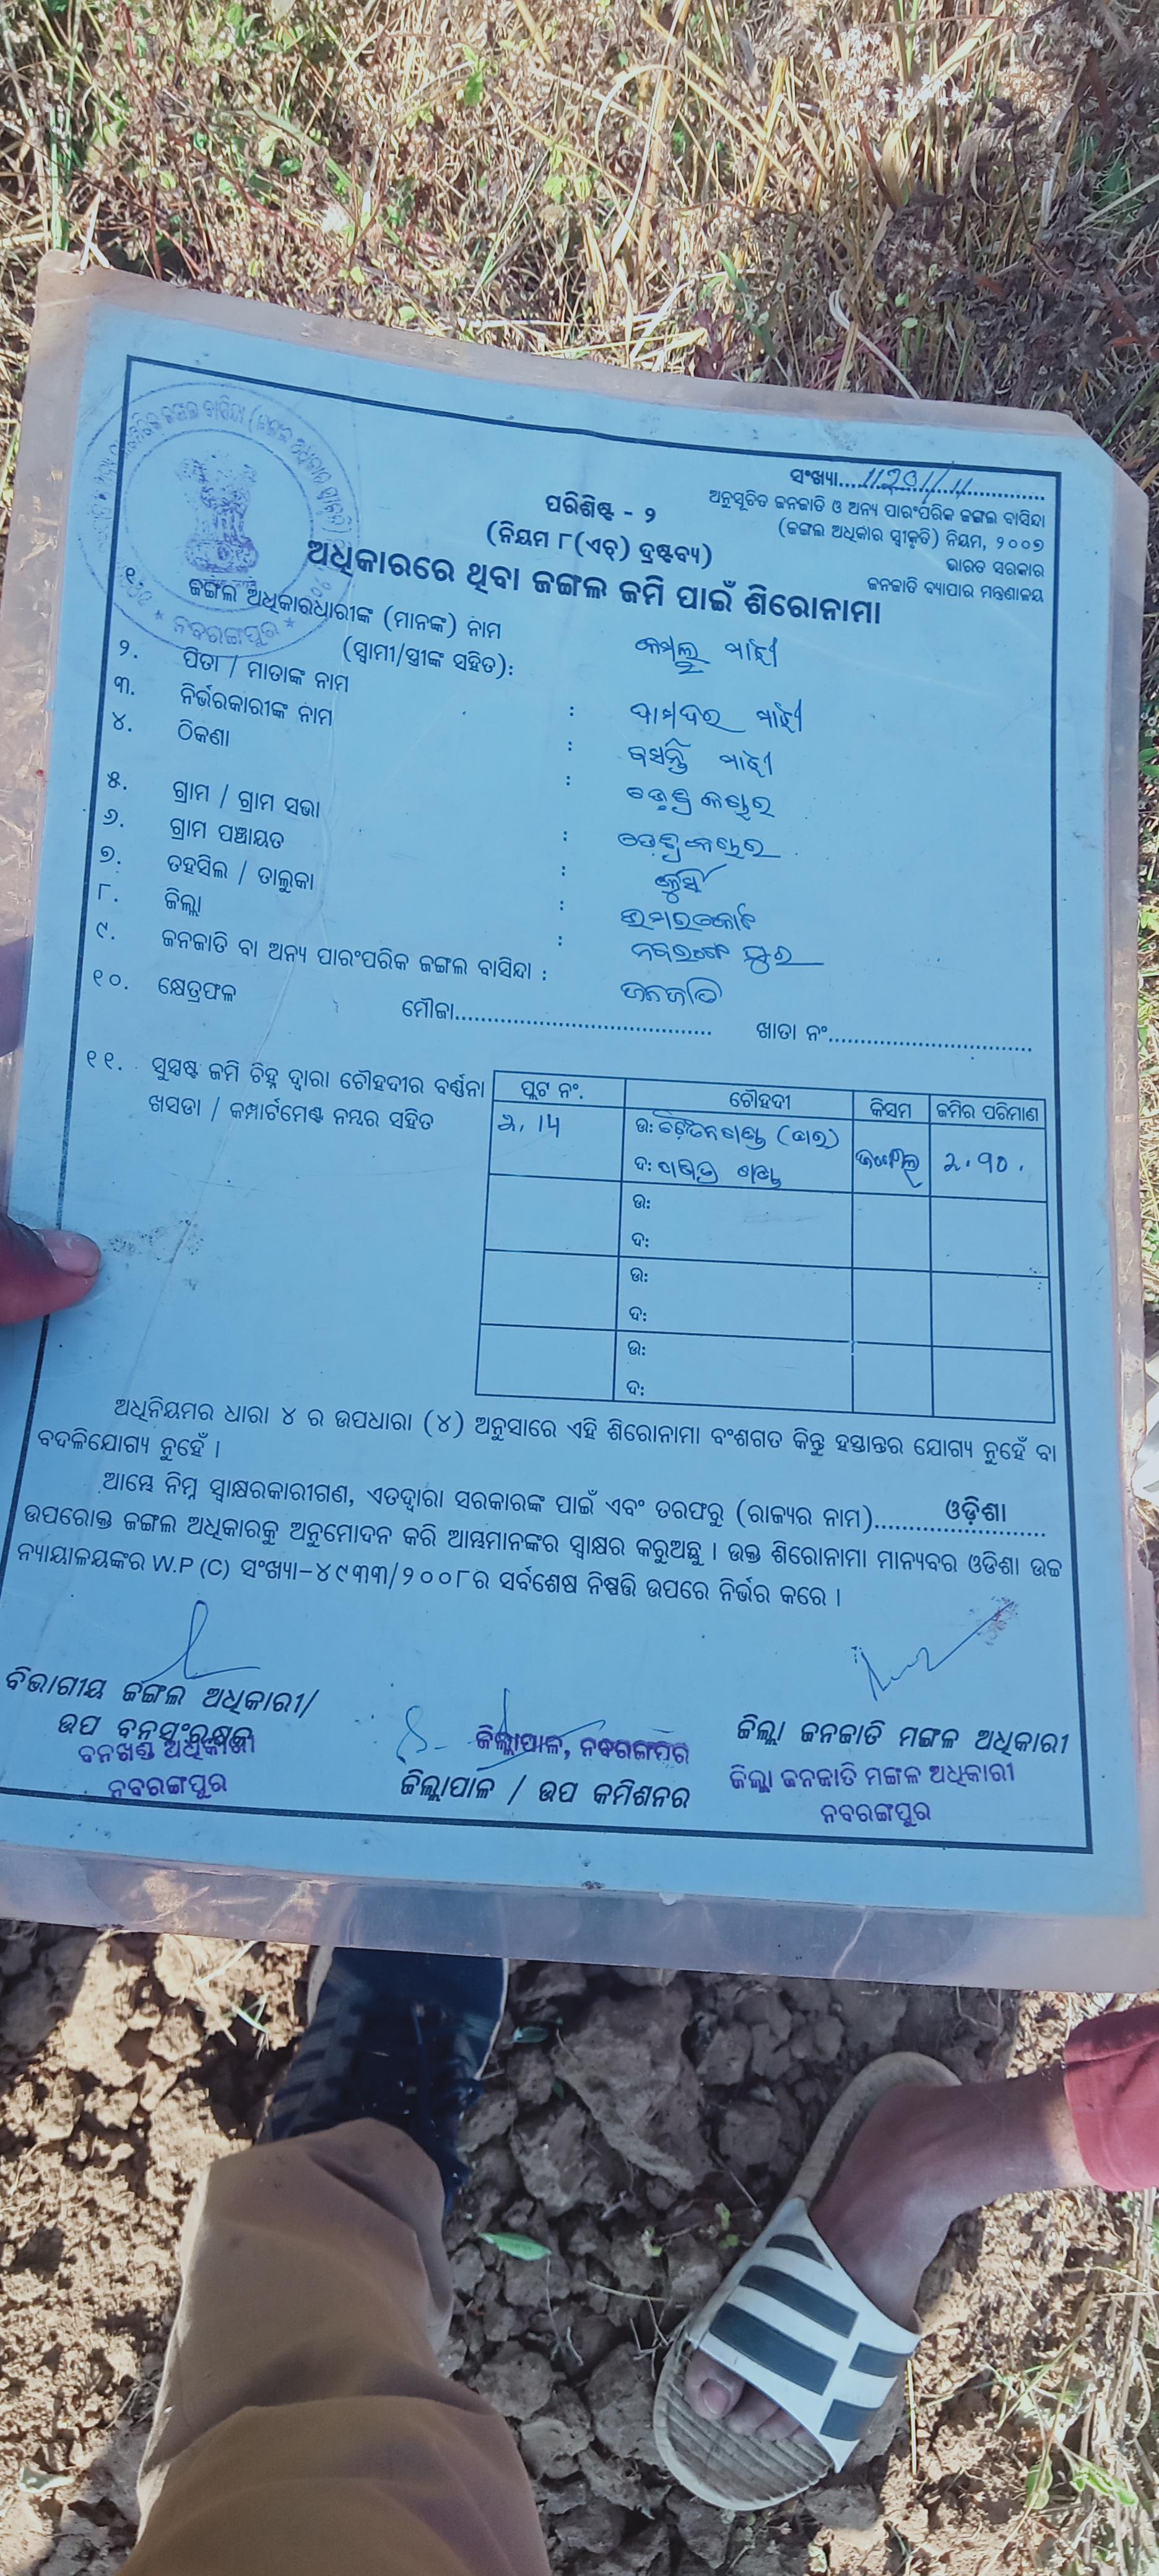 ସଂଖ୍ୟା.....1201/11.....
ଅନୁସୂଚିତ ଜନଜାତି ଓ ଅନ୍ୟ ପାରଂପରିକ ଜଙ୍ଗଲ ବାସିନ୍ଦା
(ଜଙ୍ଗଲ ଅଧିକାର ସ୍ୱୀକୃତି) ନିୟମ, ୨୦୦୭
ଭାରତ ସରକାର
ଜନଜାତି ବ୍ୟାପାର ମନ୍ତ୍ରଣାଳୟ
ପରିଶିଷ୍ଟ - ୨
(ନିୟମ ୮(ଏଚ୍) ଦ୍ରଷ୍ଟବ୍ୟ)
ଅଧିକାରରେ ଥିବା ଜଙ୍ଗଲ ଜମି ପାଇଁ ଶିରୋନାମା
ନବରଙ୍ଗପୁର
୧. ଜଙ୍ଗଲ ଅଧିକାରଧାରୀଙ୍କ (ମାନଙ୍କ) ନାମ
(ସ୍ୱାମୀ/ସ୍ତ୍ରୀଙ୍କ ସହିତ): କମଲୁ ମାଝୀ
୨. ପିତା / ମାତାଙ୍କ ନାମ : ଦାମଦର ମାଝୀ
୩. ନିର୍ଭରକାରୀଙ୍କ ନାମ : ବସନ୍ତି ମାଝୀ
୪. ଠିକଣା :
୫. ଗ୍ରାମ / ଗ୍ରାମ ସଭା :
୬. ଗ୍ରାମ ପଞ୍ଚାୟତ :
୭. ତହସିଲ / ତାଲୁକା : ଉମରକୋଟ
୮. ଜିଲ୍ଲା : ନବରଙ୍ଗପୁର
୯. ଜନଜାତି ବା ଅନ୍ୟ ପାରଂପରିକ ଜଙ୍ଗଲ ବାସିନ୍ଦା : ଜନଜାତି
୧୦. କ୍ଷେତ୍ରଫଳ ମୌଜା.......... ଖାତା ନଂ..........
୧୧. ସୁସ୍ପଷ୍ଟ ଜମି ଚିହ୍ନ ଦ୍ୱାରା ଚୌହଦୀର ବର୍ଣ୍ଣନା
ଖସଡା / କମ୍ପାର୍ଟମେଣ୍ଟ ନମ୍ବର ସହିତ
ପ୍ଲଟ ନଂ. ଚୌହଦୀ କିସମ ଜମିର ପରିମାଣ
ଉ:
ଦ:
ଜଙ୍ଗଲ
ଉ:
ଦ:
ଉ:
ଦ:
ଉ:
ଦ:
ଅଧିନିୟମର ଧାରା ୪ ର ଉପଧାରା (୪) ଅନୁସାରେ ଏହି ଶିରୋନାମା ବଂଶଗତ କିନ୍ତୁ ହସ୍ତାନ୍ତର ଯୋଗ୍ୟ ନୁହେଁ ବା
ବଦଳିଯୋଗ୍ୟ ନୁହେଁ ।
ଆମ୍ଭେ ନିମ୍ନ ସ୍ୱାକ୍ଷରକାରୀଗଣ, ଏତଦ୍ୱାରା ସରକାରଙ୍କ ପାଇଁ ଏବଂ ତରଫରୁ (ରାଜ୍ୟର ନାମ)..........ଓଡ଼ିଶା
ଉପରୋକ୍ତ ଜଙ୍ଗଲ ଅଧିକାରକୁ ଅନୁମୋଦନ କରି ଆମ୍ଭମାନଙ୍କର ସ୍ୱାକ୍ଷର କରୁଅଛୁ । ଉକ୍ତ ଶିରୋନାମା ମାନ୍ୟବର ଓଡିଶା ଉଚ୍ଚ
ନ୍ୟାୟାଳୟଙ୍କର W.P (C) ସଂଖ୍ୟା–୪୯୩୩/୨୦୦୮ର ସର୍ବଶେଷ ନିଷ୍ପତ୍ତି ଉପରେ ନିର୍ଭର କରେ ।
ବିଭାଗୀୟ ଜଙ୍ଗଲ ଅଧିକାରୀ/
ଉପ ବନସଂରକ୍ଷକ
ବନଖଣ୍ଡ ଅଧିକାରୀ
ନବରଙ୍ଗପୁର
ଜିଲ୍ଲାପାଳ, ନବରଙ୍ଗପୁର
ଜିଲ୍ଲାପାଳ / ଉପ କମିଶନର
ଜିଲ୍ଲା ଜନଜାତି ମଙ୍ଗଳ ଅଧିକାରୀ
ଜିଲ୍ଲା ଜନଜାତି ମଙ୍ଗଳ ଅଧିକାରୀ
ନବରଙ୍ଗପୁର